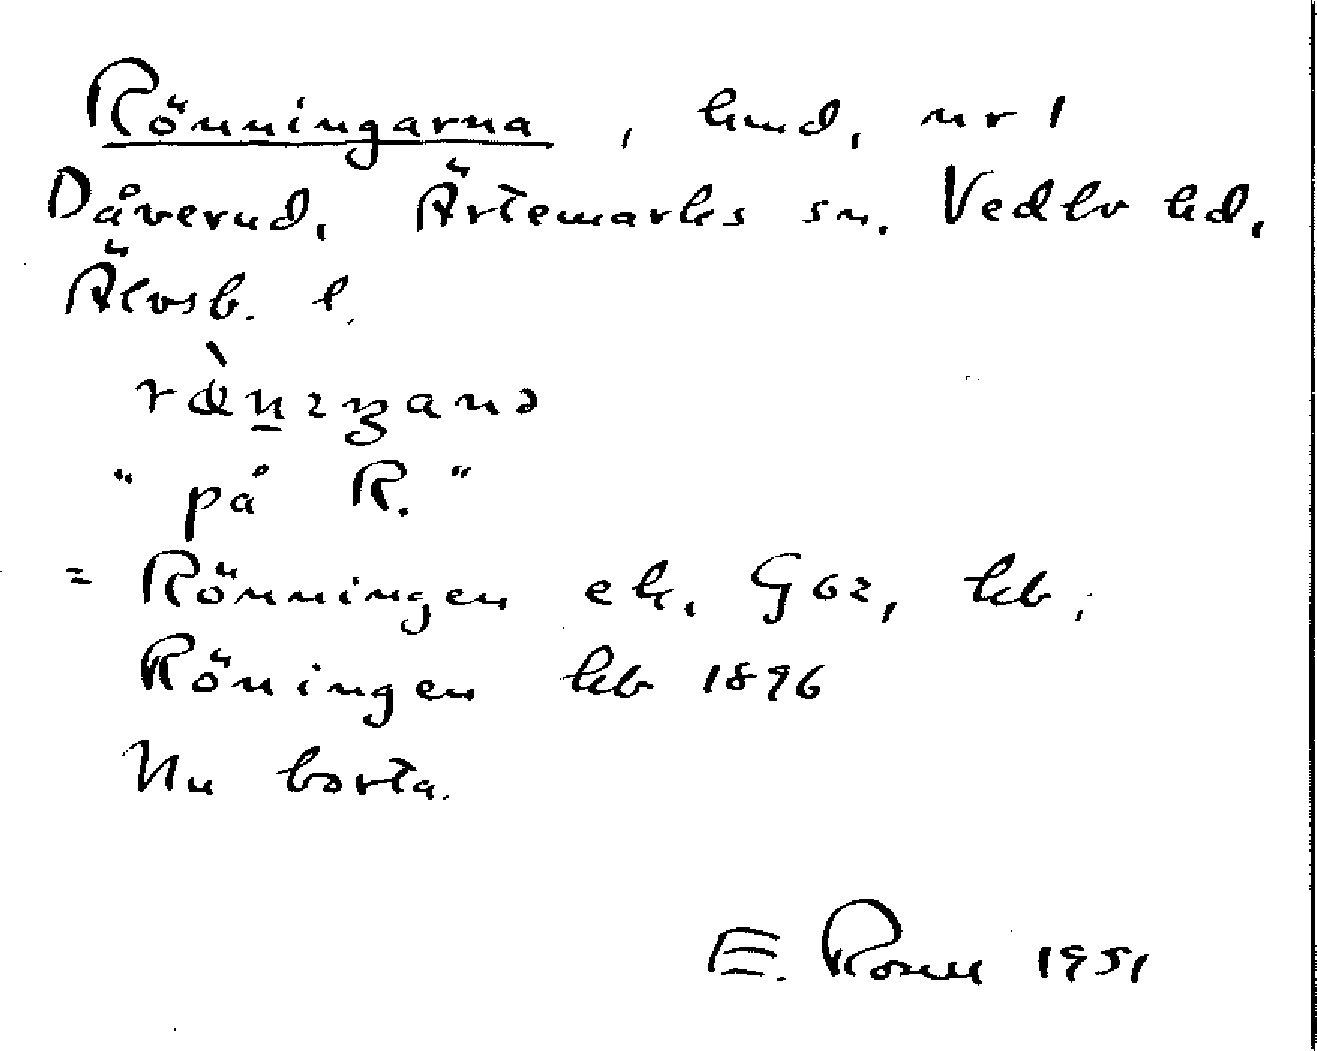 Rönningarna, hmd, nr 1
Dåverud, Ärtemarks sn. Vedbo hd,
Älvsb. l.
"på R."
= Rönningen ek, GOZ, kb,
Röningen kb 1896
Nu borta.
E. Rosell 1951